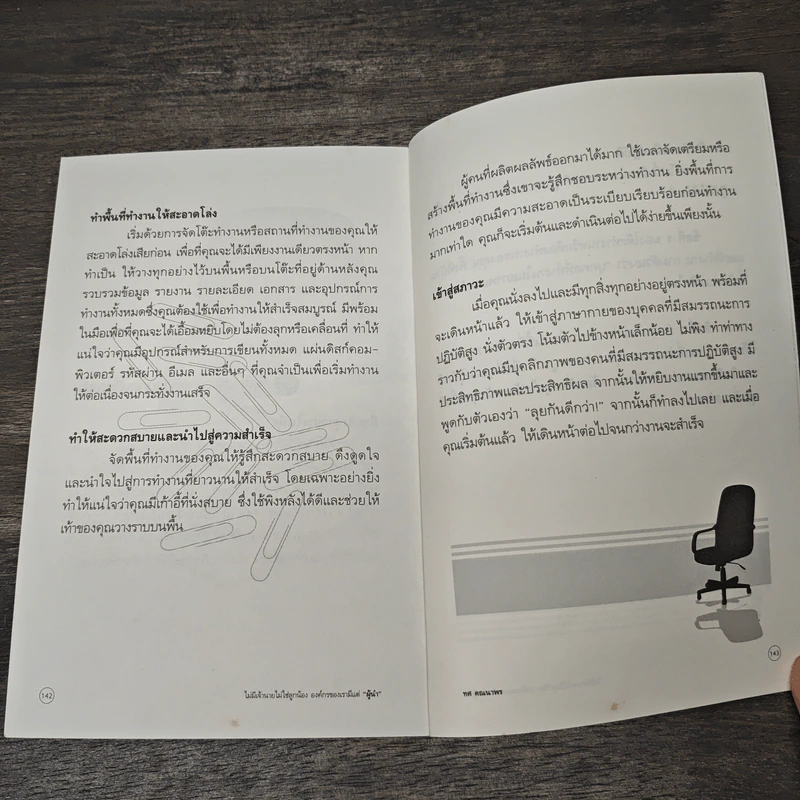 ทำพื้นที่ทำงานให้สะอาดโล่ง
เริ่มด้วยการจัดโต๊ะทำงานหรือสถานที่ทำงานของคุณให้
สะอาดโล่งเสียก่อน เพื่อที่คุณจะได้มีเพียงงานเดียวตรงหน้า หาก
จำเป็น ให้วางทุกอย่างไว้บนพื้นหรือบนโต๊ะที่อยู่ด้านหลังคุณ
รวบรวมข้อมูล รายงาน รายละเอียด เอกสาร และอุปกรณ์การ
ทำงานทั้งหมดซึ่งคุณต้องใช้เพื่อทำงานให้สำเร็จสมบูรณ์ มีพร้อม
ในมือเพื่อที่คุณจะได้เอื้อมหยิบโดยไม่ต้องลุกหรือเคลื่อนที่ ทำให้
แน่ใจว่าคุณมีอุปกรณ์สำหรับการเขียนทั้งหมด แผ่นดิสก์คอม-
พิวเตอร์ รหัสผ่าน อีเมล และอื่นๆ ที่คุณจำเป็นเพื่อเริ่มทำงาน
ให้ต่อเนื่องจนกระทั่งงานเสร็จ
ทำให้สะดวกสบายและนำไปสู่ความสำเร็จ
จัดพื้นที่ทำงานของคุณให้รู้สึกสะดวกสบาย ดึงดูดใจ
และนำใจไปสู่การทำงานที่ยาวนานให้สำเร็จ โดยเฉพาะอย่างยิ่ง
ทำให้แน่ใจว่าคุณมีเก้าอี้ที่นั่งสบาย ซึ่งใช้พิงหลังได้ดีและช่วยให้
เท้าของคุณวางราบบนพื้น
142
ไม่มีเจ้านายไม่ใช่ลูกน้อง องค์กรของเรามีแต่ “ผู้นำ”
ผู้คนที่ผลิตผลลัพธ์ออกมาได้มาก ใช้เวลาจัดเตรียมหรือ
สร้างพื้นที่ทำงานซึ่งเขาจะรู้สึกชอบระหว่างทำงาน ยิ่งพื้นที่การ
ทำงานของคุณมีความสะอาดเป็นระเบียบเรียบร้อยก่อนทำงาน
มากเท่าใด คุณก็จะเริ่มต้นและดำเนินต่อไปได้ง่ายขึ้นเพียงนั้น
เข้าสู่สภาวะ
เมื่อคุณนั่งลงไปและมีทุกสิ่งทุกอย่างอยู่ตรงหน้า พร้อมที่
จะเดินหน้าแล้ว ให้เข้าสู่ภาษากายของบุคคลที่มีสมรรถนะการ
ปฏิบัติสูง นั่งตัวตรง โน้มตัวไปข้างหน้าเล็กน้อย ไม่พิง ทำท่าทาง
ราวกับว่าคุณมีบุคลิกภาพของคนที่มีสมรรถนะการปฏิบัติสูง มี
ประสิทธิภาพและประสิทธิผล จากนั้นให้หยิบงานแรกขึ้นมาและ
พูดกับตัวเองว่า “ลุยกันดีกว่า!” จากนั้นก็ทำลงไปเลย และเมื่อ
คุณเริ่มต้นแล้ว ให้เดินหน้าต่อไปจนกว่างานจะสำเร็จ
ทศ คณนาพร
143